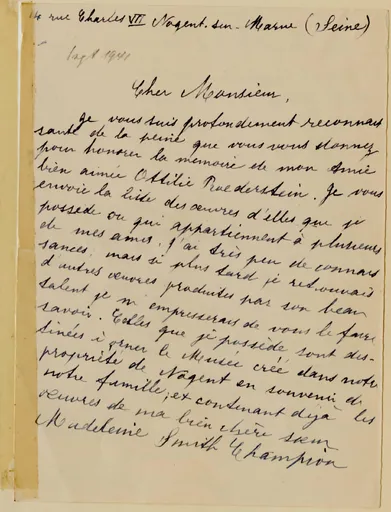 14 rue Charles VII Nogent-sur-Marne (Seine)
Sept 1941
Cher Monsieur,
Je vous suis profondément reconnais
sante de la peine que vous vous donnez
pour honorer la mémoire de mon amie
bien aimée Ottilie Roederstein. Je vous
envoie la liste des œuvres d'elles que je
possède ou qui appartiennent à plusieurs
de mes amis. J'ai très peu de connais
sances, mais si plus tard je retrouvais
d'autres œuvres produites par son beau
talent je m'empresserais de vous le faire
savoir. Celles que je possède, sont des-
tinées à orner le Musée créé dans notre
propriété de Nogent en souvenir de
notre famille, et contenant déjà les
œuvres de ma bien chère sœur
Madeleine Smith Champion